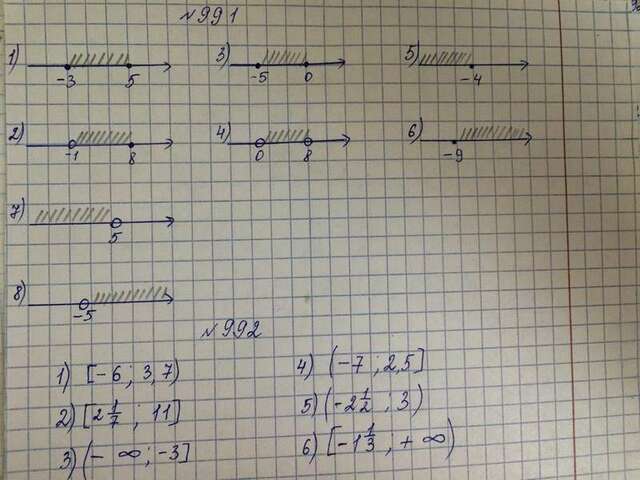 №991
1) -3 5
3) -5 0
5) -4
2) -1 8
4) 0 8
6) -9
7) 5
8) -5
№992
1) [-6; 3,7)
4) (-7; 2,5]
2) [2 1/7; 11]
5) (-2 1/2; 3)
3) (-∞; -3]
6) [-1 1/3; +∞)